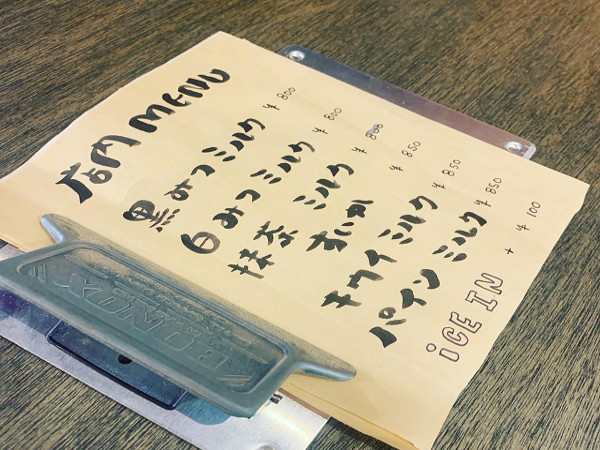 店内 MENU
黒みつミルク ¥800
白みつミルク ¥800
抹茶ミルク ¥800
すいか ¥850
キウイミルク ¥850
パインミルク ¥850
iCE IN + ¥100
BONOX